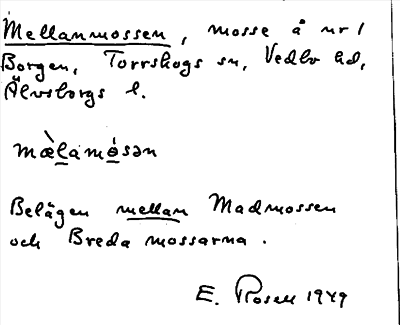 Mellanmossen, mosse å nr 1
Borgen, Torrskogs sn, Vedbo hd,
Älvsborgs l.
mæ̀lamósən
Belägen mellan Madmossen
och Breda mossarna.
E. Rosell 1949